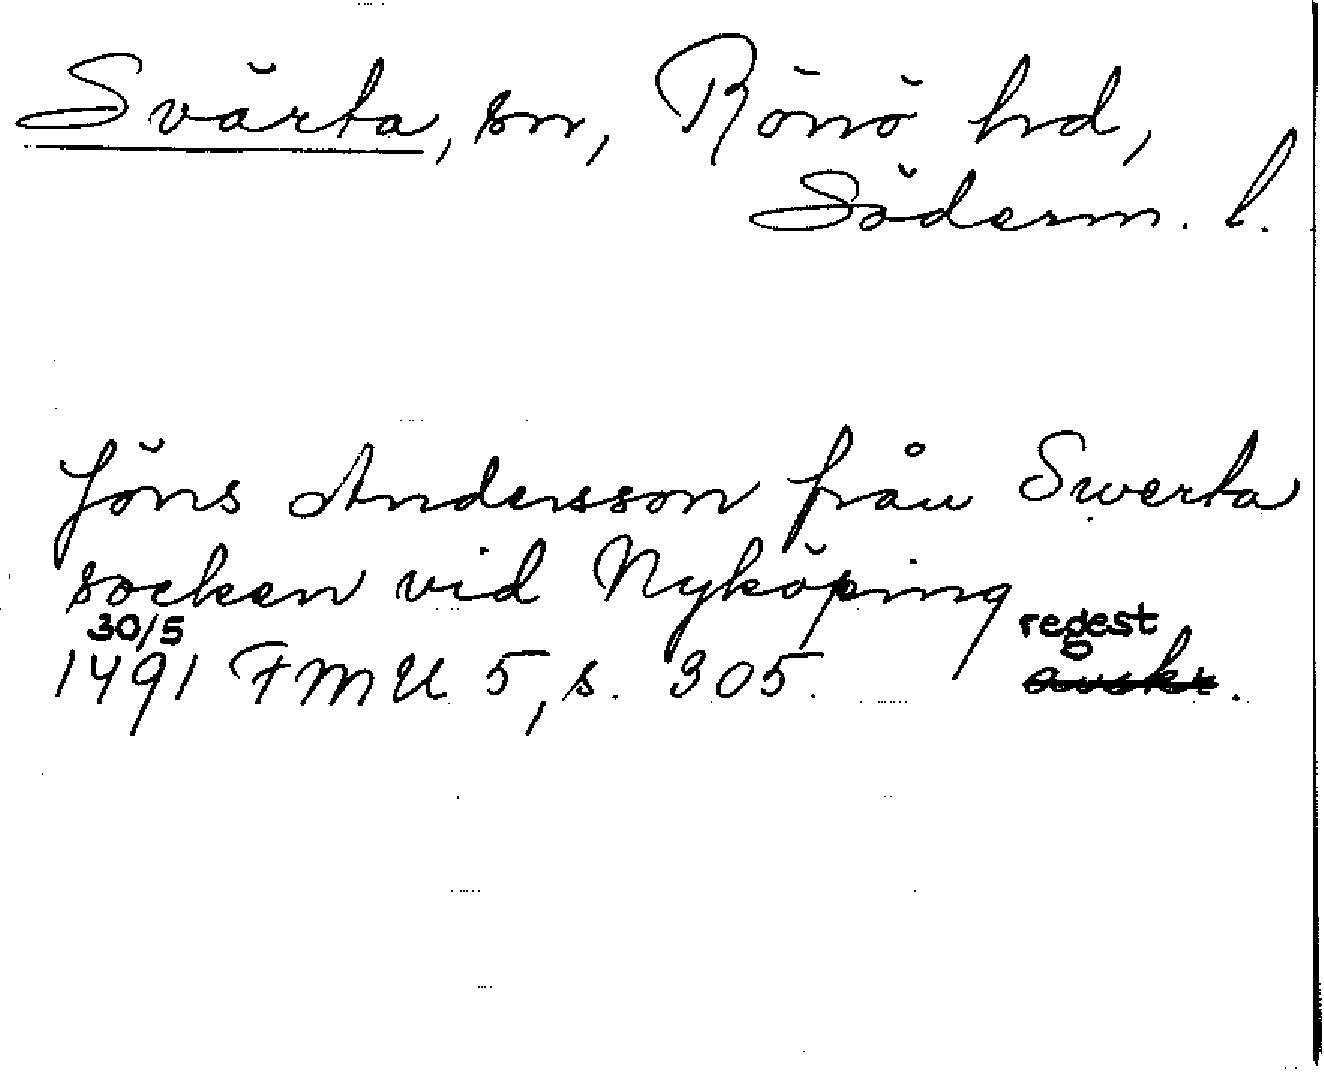 Svärta, sn, Rönö hd,
Söderm. l.
Jöns Andersson från Swerta
socken vid Nyköping
30/5 regest
1491 FMU 5, s. 305. avskr.